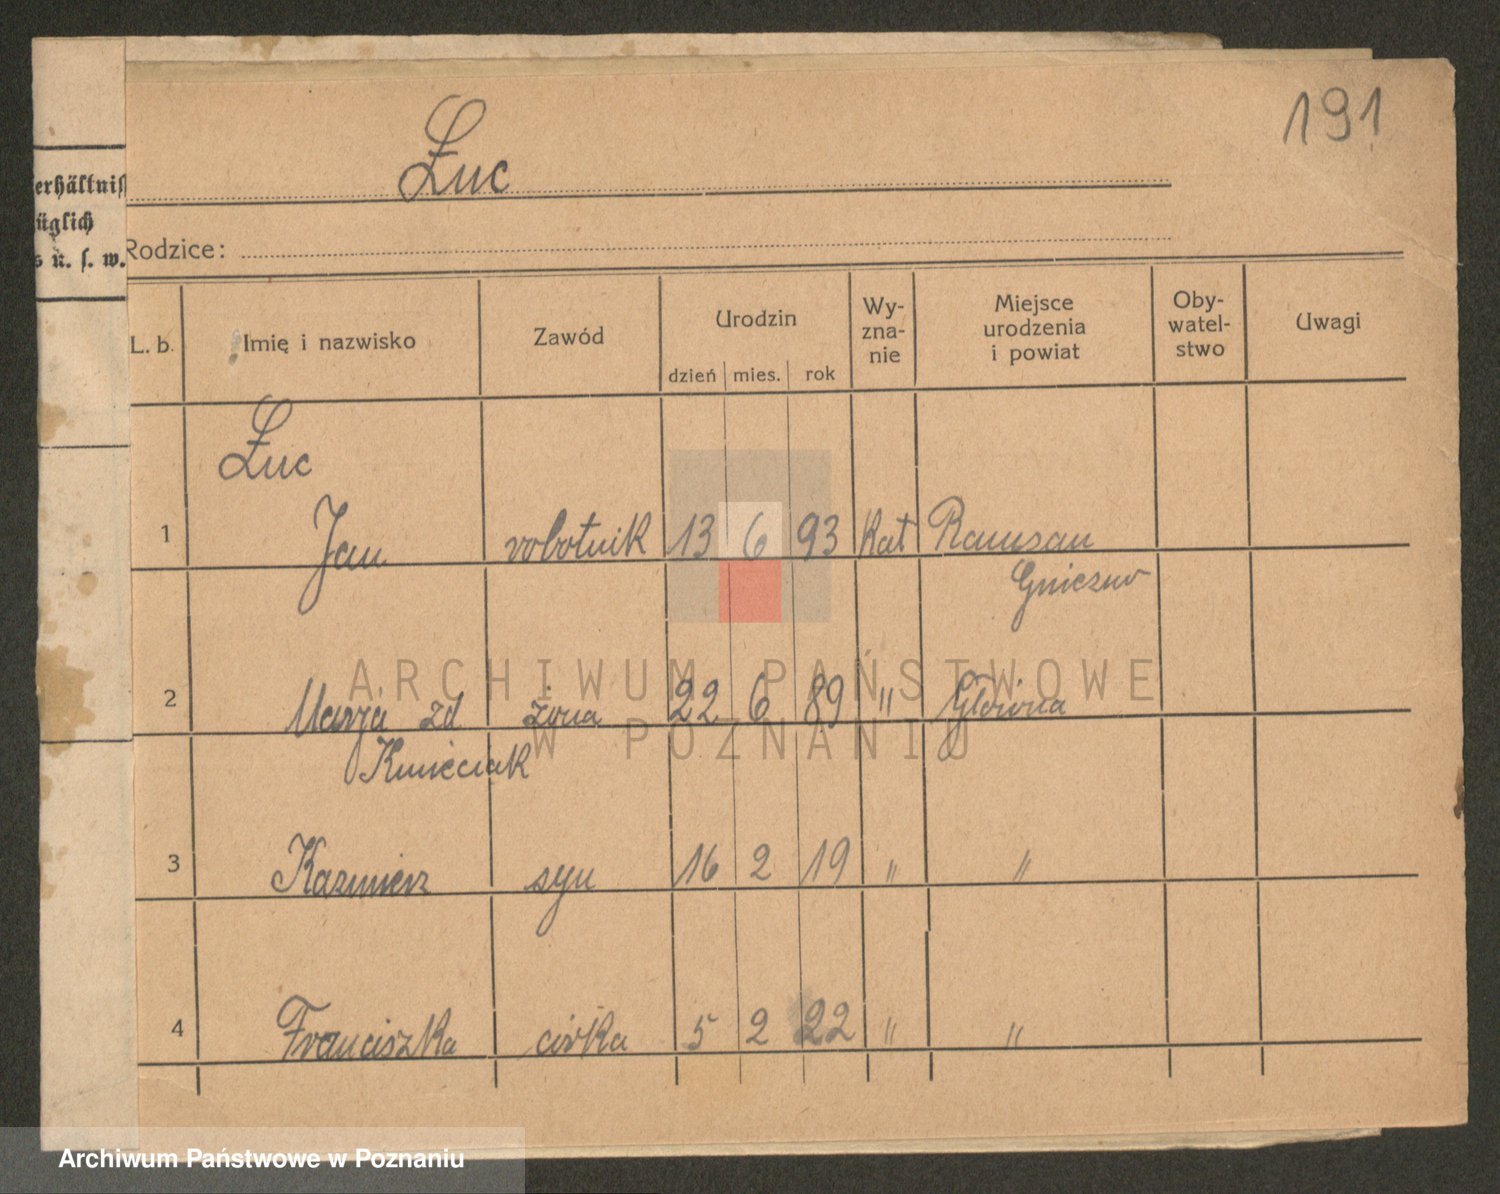 191
Łuc
erhältniß
üglich
s u. s. w.
Rodzice:
L. b. Imię i nazwisko Zawód Urodzin Wy-zna-nie Miejsce urodzenia i powiat Oby-watel-stwo Uwagi
dzień mies. rok
Łuc
1 Jan robotnik 13 6 93 Kat Ramsau
Gniezno
2 Marja zd żona 22 6 89 " Główna
Kmieciak
3 Kazimierz syn 16 2 19 " "
4 Franciszka córka 5 2 22 " "
ARCHIWUM PAŃSTWOWE
W POZNANIU
Archiwum Państwowe w Poznaniu